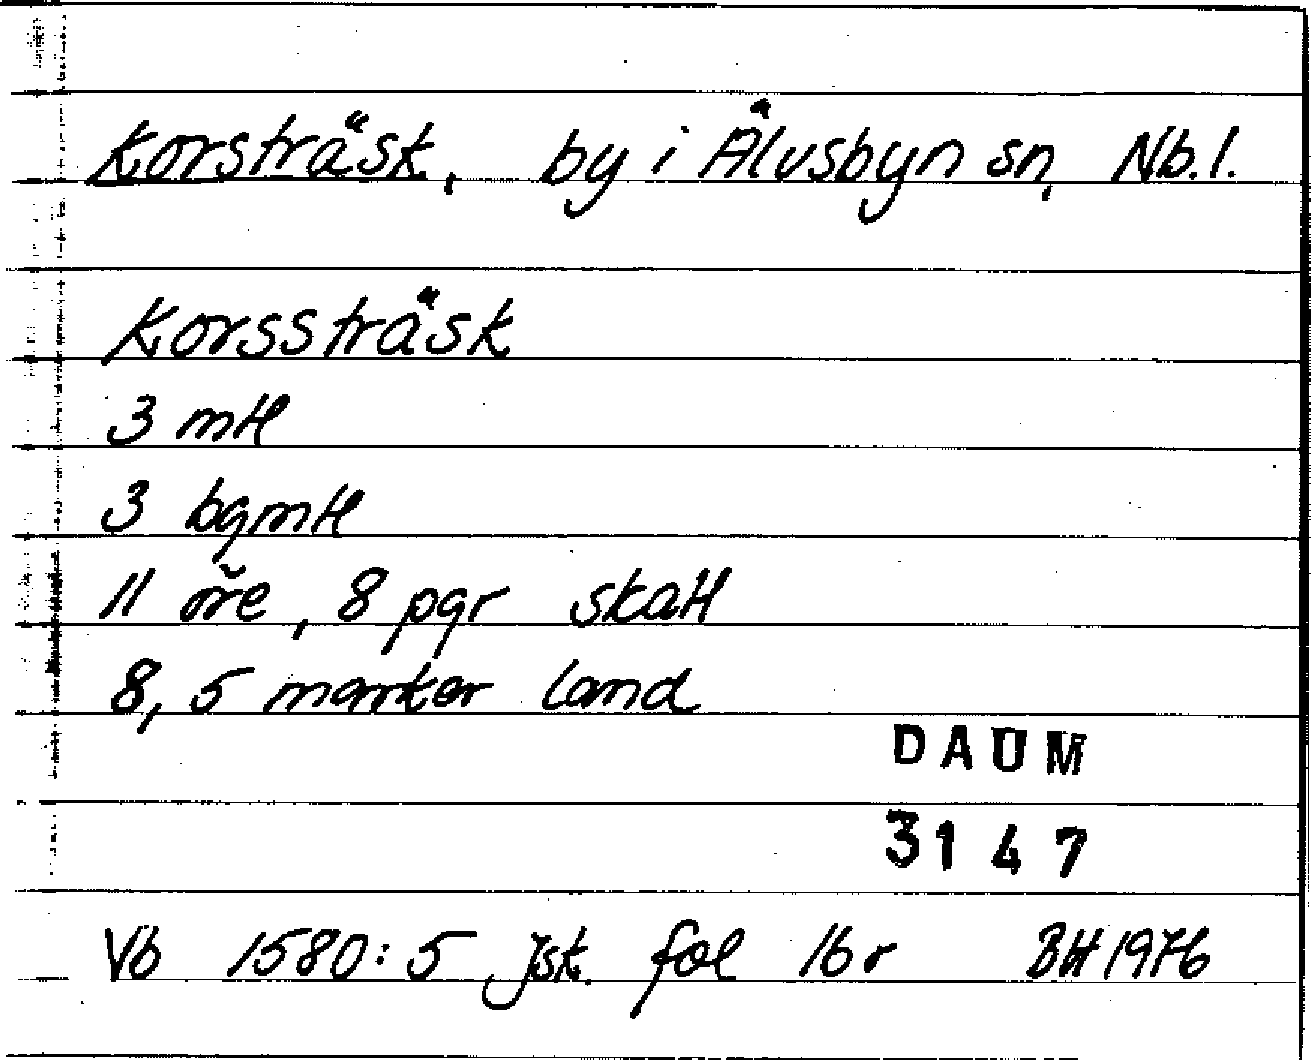 Korsträsk, by i Älvsbyn sn, Nb.l.
Korssträsk
3 mtl
3 bgmtl
11 öre, 8 pgr skatt
8,5 marker land
DAUM
3147
Vb 1580:5 Jsk. fol 16r BH 1976